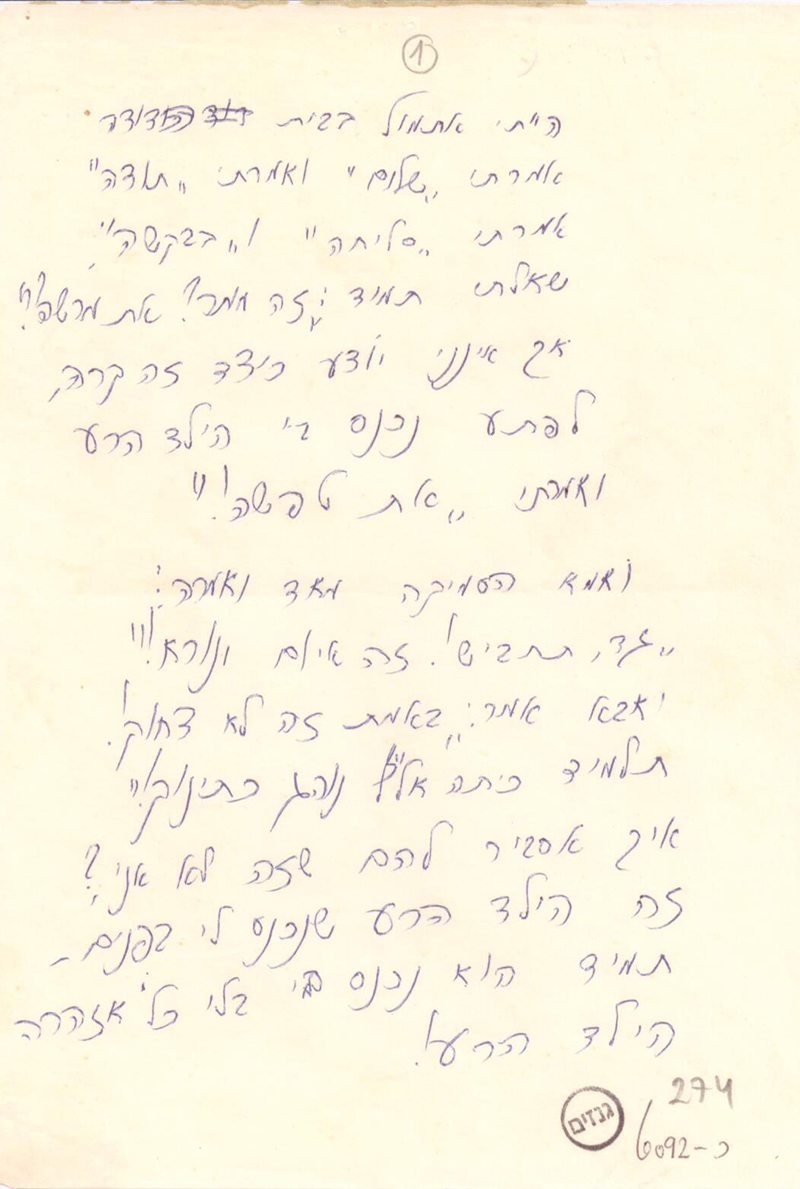 1
הייתי אתמול בבית הדודה
אמרתי „שלום" ואמרתי „תודה"
אמרתי „סליחה" ו„בבקשה",
שאלתי תמיד: „זה מותר? את מרשה?!"
אך אינני יודע כיצד זה קרה,
לפתע נכנס בי הילד הרע
ואמרתי „את טפשה!"
ואמא הסמיקה מאד ואמרה:
„גד, תתבייש! זה איום ונורא!"
ואבא אמר: „באמת זה לא צחוק!
תלמיד כיתה אל"ף נוהג כתינוק!"
איך אסביר להם שזה לא אני?
זה הילד הרע שנכנס לי בפנים –
תמיד הוא נכנס בי בלי כל אזהרה
הילד הרע!
274
גנזים
כ-6092